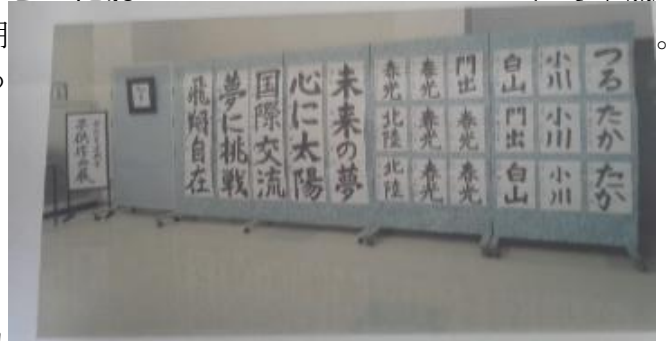 つる
たか
たか
小川
小川
小川
白山
門出
白山
門出
春光
春光
春光
春光
春光
春光
北陸
北陸
未来の夢
心に太陽
国際交流
夢に挑戦
飛翔自在